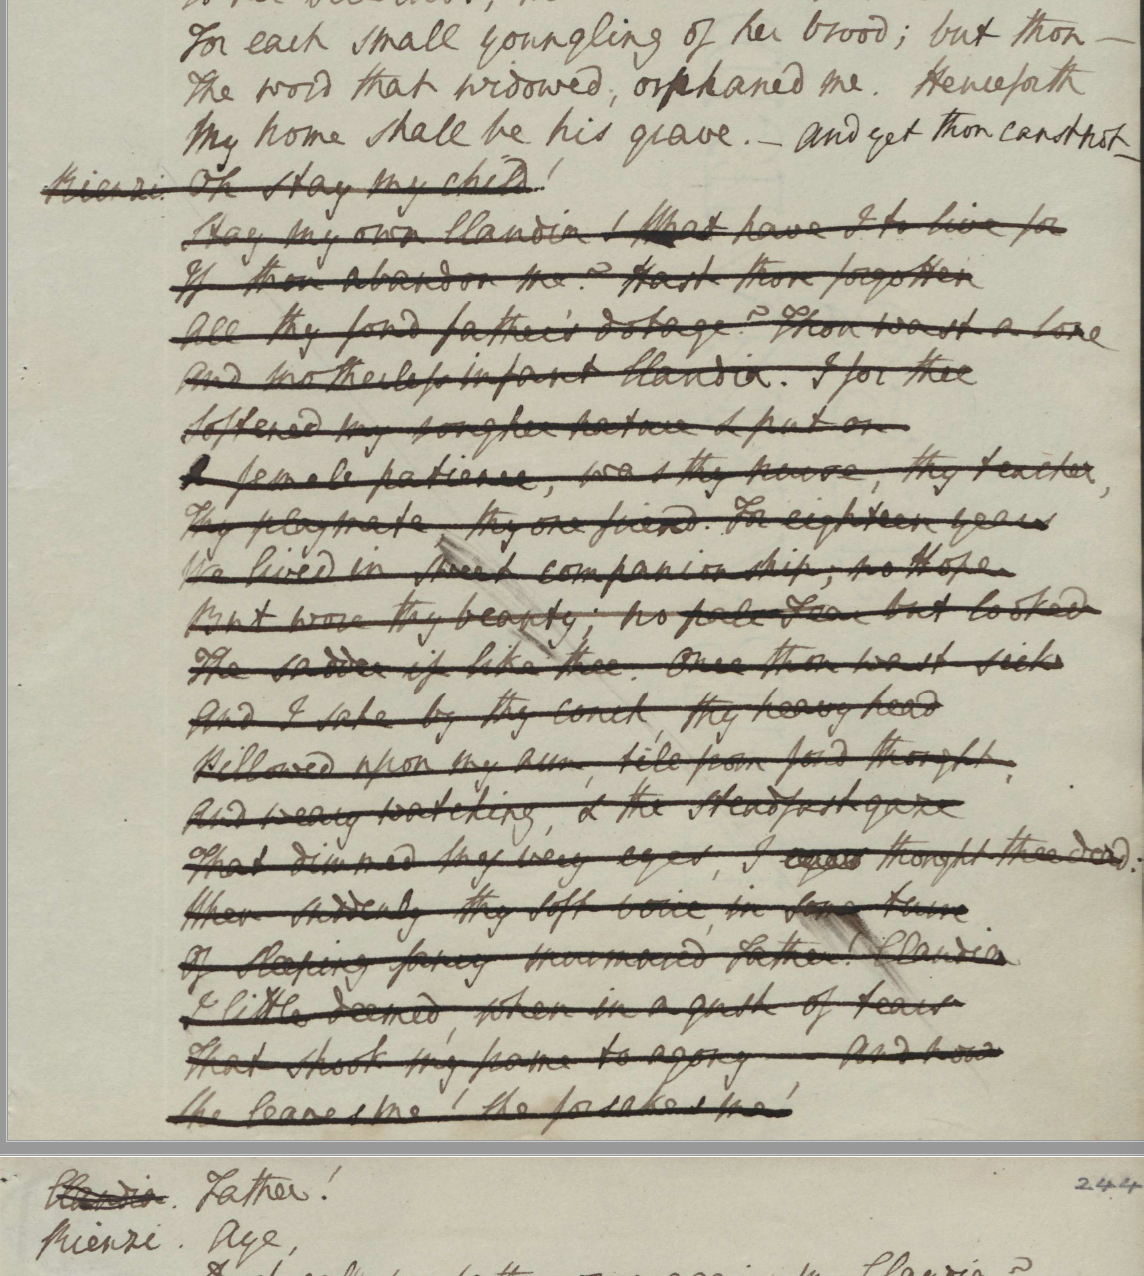 For each small youngling of her brood; but thou —
The word that widowed, orphaned me. Henceforth
My home shall be his grave. — and yet thou canst not —
Rienzi. Oh stay my child!
Stay my own Claudia! What have I to live for
If thou abandon me? Hast thou forgotten
All thy fond father's dotage? Thou wast a lone
And motherless infant Claudia. I for thee
Softened my rougher nature & put on
A female patience, was thy nurse, thy teacher,
Thy playmate thy one friend. For eighteen years
We lived in sweet companionship; no Hope
But wore thy beauty; no pale Fear but looked
The sadder if like thee. Once thou wast sick
And I sate by thy couch, thy heavy head
Pillowed upon my arm, till from fond thought,
And weary watching, & the steadfast gaze
That dimmed my very eyes, I thought thee dead:
When suddenly thy soft voice, in some turn
Of sleeping fancy murmured, Father! Claudia
I little deemed, when in a gush of tears
That shook my frame to agony — And now
She leaves me! she forsakes me!
Claudia. Father!
244
Rienzi. Aye,
Claudia?